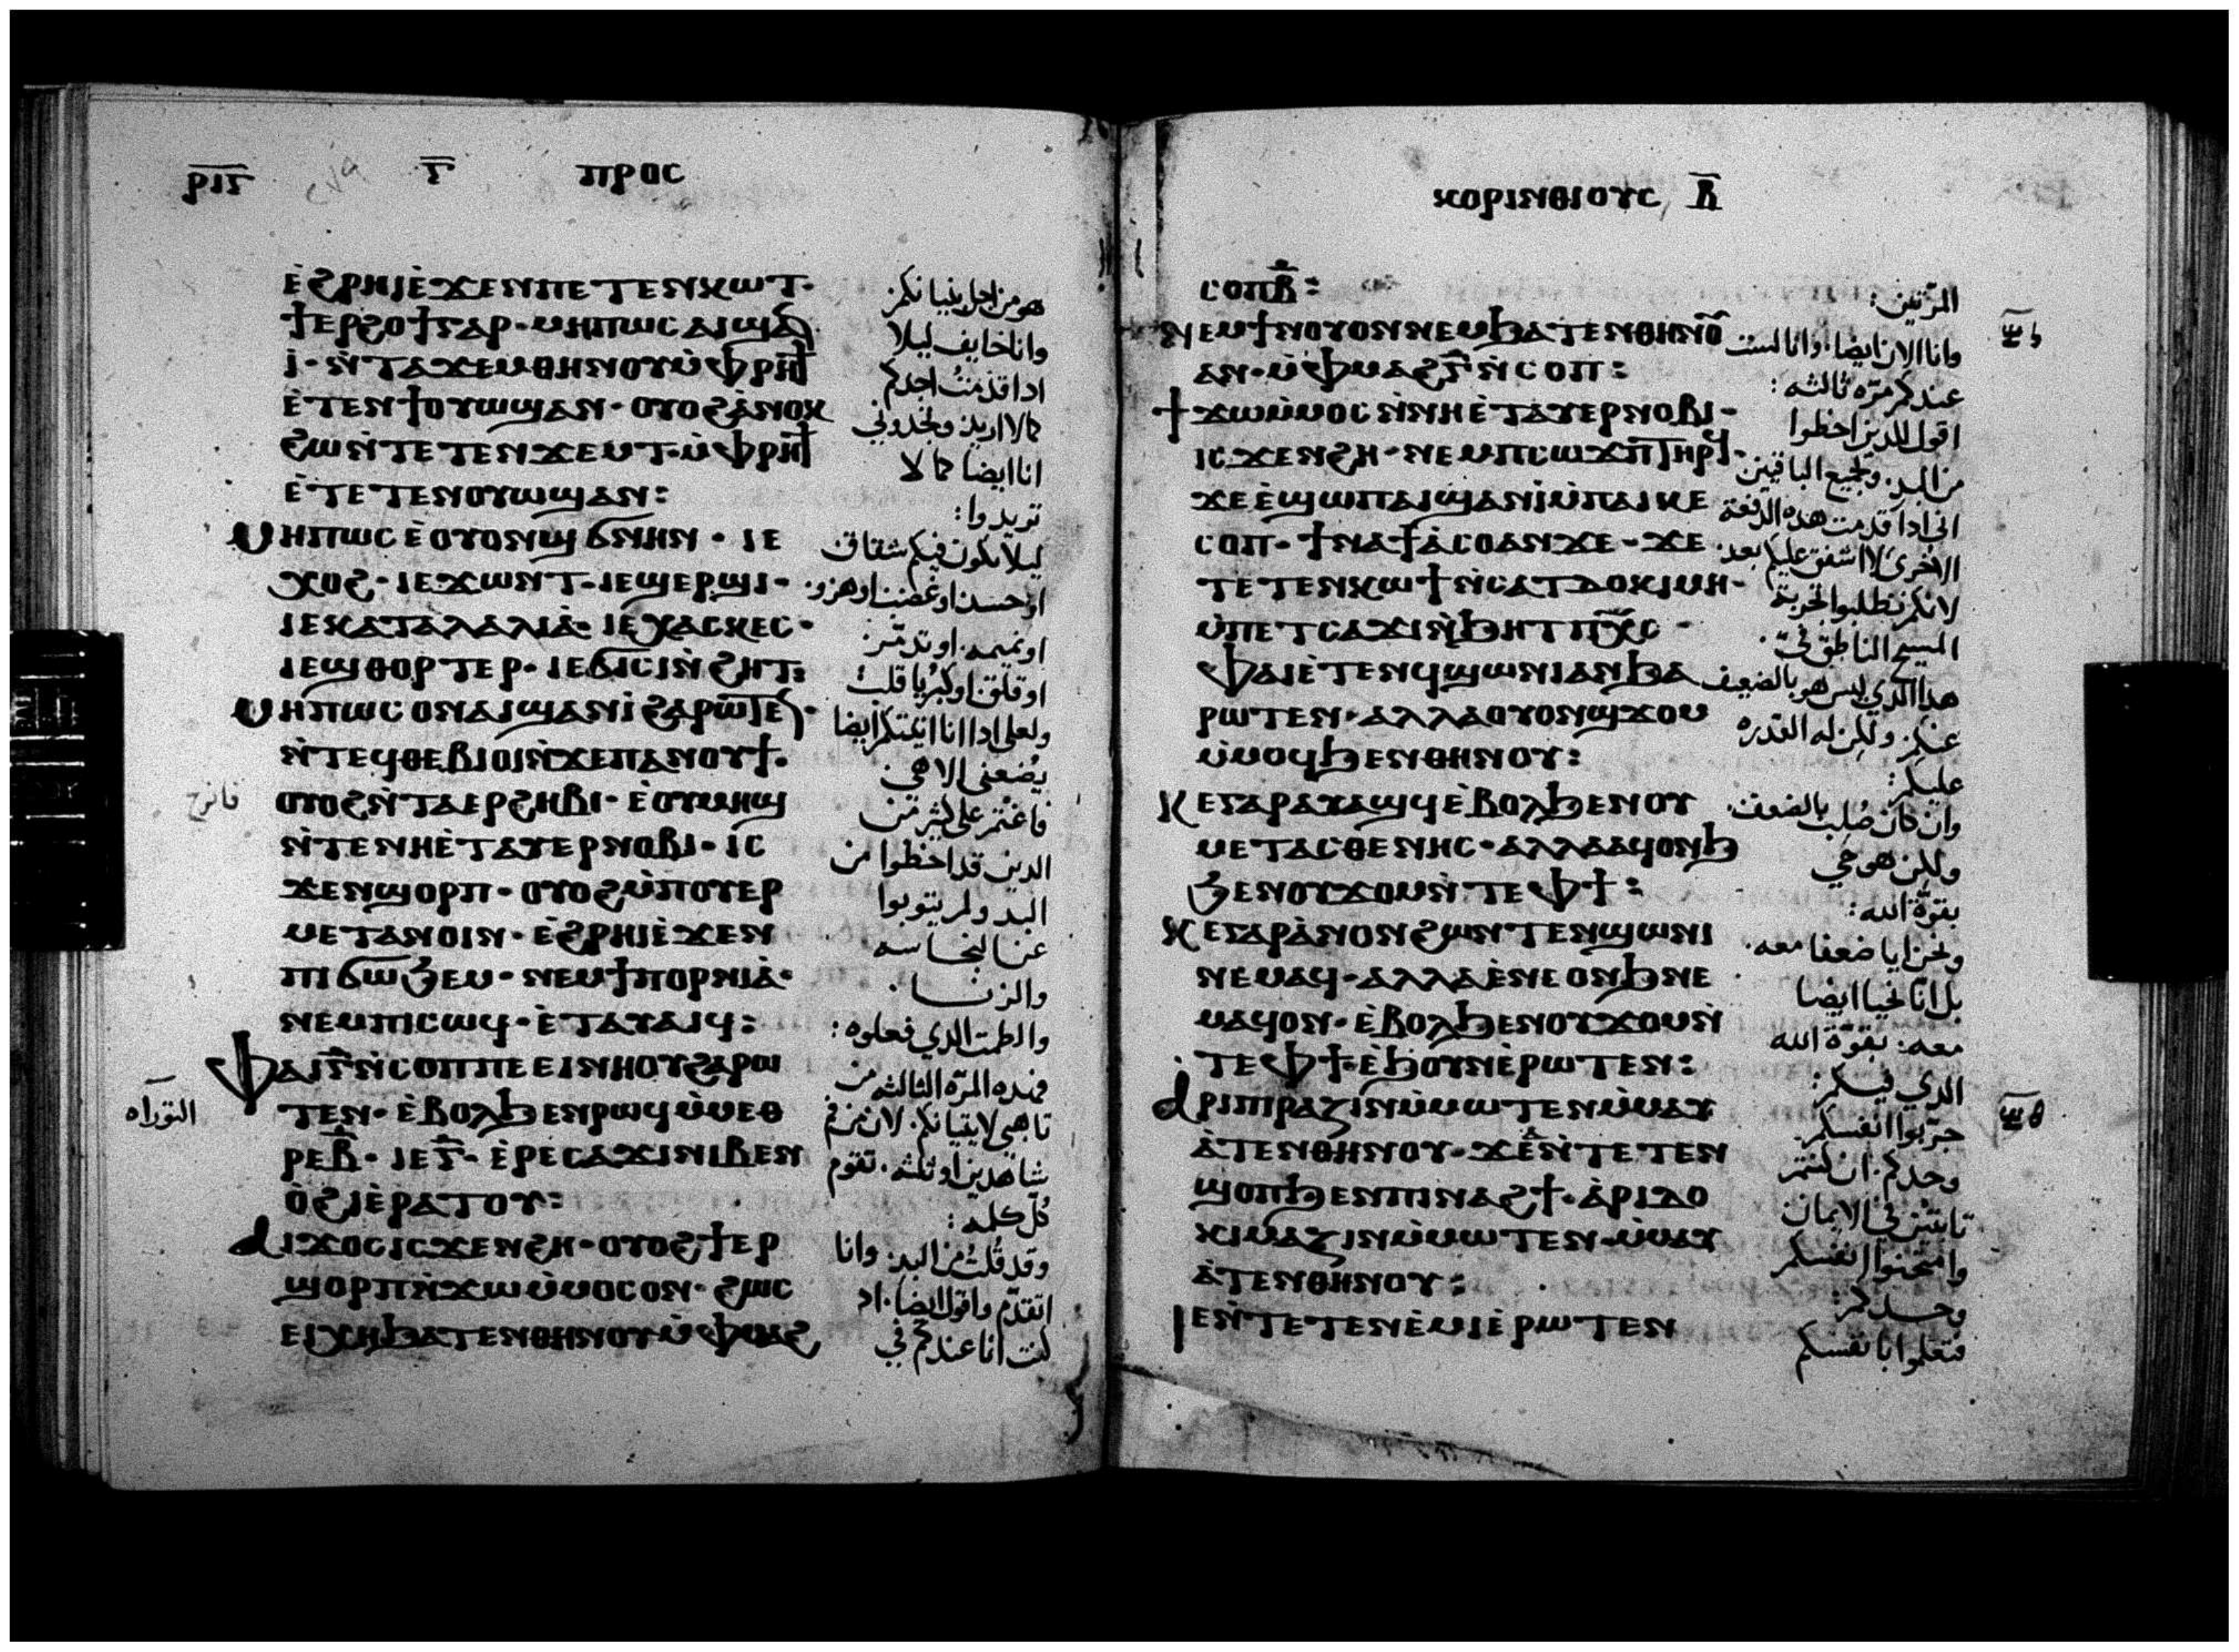 ⲣⲓⲅ ⲅ ⲡⲣⲟⲥ
ⲉ̀ϩⲣⲏⲓⲉ̀ϫⲉⲛⲡⲉⲧⲉⲛⲕⲱⲧ·
ϯⲉⲣϩⲟϯⲅⲁⲣ·ⲙⲏⲡⲱⲥⲁⲓϣⲁⲛ
ⲓ̀·ⲛ̀ⲧⲁϫⲉⲙⲑⲏⲛⲟⲩⲙ̀ⲫⲣⲏϯ
ⲉ̀ⲧⲉⲛϯⲟⲩⲱϣⲁⲛ·ⲟⲩⲟϩⲁ̀ⲛⲟⲕ
ϩⲱⲛ̀ⲧⲉⲧⲉⲛϫⲉⲙⲧ·ⲙ̀ⲫⲣⲏϯ
ⲉ̀ⲧⲉⲧⲉⲛⲟⲩⲱϣⲁⲛ:
ⲙⲏⲡⲱⲥⲉ̀ⲟⲩⲟⲛϣϭⲛⲏⲛ·ⲓⲉ
ⲭⲟϩ·ⲓⲉϫⲱⲛⲧ·ⲓⲉϣⲉⲣϣⲓ·
ⲓⲉⲕⲁⲧⲁⲗⲁⲗⲓⲁ̀·ⲓⲉⲭⲁⲥⲕⲉⲥ·
ⲓⲉϣⲑⲟⲣⲧⲉⲣ·ⲓⲉϭⲓⲥⲓⲛ̀ϩⲏⲧ:
ⲙⲏⲡⲱⲥⲟⲛⲁⲓϣⲁⲛⲓ̀ϩⲁⲣⲱⲧⲉⲛ·
ⲛ̀ⲧⲉϥⲑⲉⲃⲓⲟⲓⲛ̀ϫⲉⲡⲁⲛⲟⲩϯ·
ⲟⲩⲟϩⲛ̀ⲧⲁⲉⲣϩⲏⲃⲓ·ⲉ̀ⲟⲩⲙⲏϣ
ⲛ̀ⲧⲉⲛⲏⲉ̀ⲧⲁⲩⲉⲣⲛⲟⲃⲓ·ⲓⲥ
ϫⲉⲛϣⲟⲣⲡ·ⲟⲩⲟϩⲙ̀ⲡⲟⲩⲉⲣ
ⲙⲉⲧⲁⲛⲟⲓⲛ·ⲉ̀ϩⲣⲏⲓⲉ̀ϫⲉⲛ
ⲡⲓϭⲱϧⲉⲙ·ⲛⲉⲙϯⲡⲟⲣⲛⲓⲁ̀·
ⲛⲉⲙⲡⲓⲥⲱϥ·ⲉ̀ⲧⲁⲩⲁⲓϥ:
ⲫⲁⲓⲅ̅ⲛ̀ⲥⲟⲡⲡⲉⲉⲓⲛⲏⲟⲩϩⲁⲣⲱ
ⲧⲉⲛ·ⲉ̀ⲃⲟⲗϧⲉⲛⲣⲱϥⲙ̀ⲙⲉⲑ
ⲣⲉⲃ̅·ⲓⲉⲅ̅·ⲉ̀ⲣⲉⲥⲁϫⲓⲛⲓⲃⲉⲛ
ⲟ̀ϩⲓⲉ̀ⲣⲁⲧⲟⲩ:
ⲁⲓϫⲟⲥⲓⲥϫⲉⲛϩⲏ·ⲟⲩⲟϩϯⲉⲣ
ϣⲟⲣⲡⲛ̀ϫⲱⲙ̀ⲙⲟⲥⲟⲛ·ϩⲱⲥ
ⲉⲓⲭⲏϧⲁⲧⲉⲛⲑⲏⲛⲟⲩⲙ̀ⲫⲙⲁϩ
هو من اجل بنيانكم
وانا خايف ليلا
ادا قدمت اجدكم
كما لا اريد وتجدوني
انا ايضا كما لا
تريدوا:
ليلا يكون فيكم شقاق
او حسد او غضب او هزو
او نميمه او تدمر
او قلق او كبريا قلب
ولعلي ادا انا اتيتكم ايضا
يضعني الاهي
فاغتم على كثير من
الدين قد اخطوا من
البد ولم يتوبوا
عن النجاسه
والزنا
والطمث الدي فعلوه:
فهده المره الثالثه من
تاهبي لاتيانكم لان من فم
شاهدين او ثلثه تقوم
كل كلمه:
وقد قلت من البد وانا
اتقدم واقول ايضا اد
كنت انا عندكم في
التوراه
ⲕⲟⲣⲓⲛⲑⲓⲟⲩⲥ ⲃ̅
ⲥⲟⲡⲃ̅:
ⲛⲉⲙϯⲛⲟⲩⲟⲛⲛⲉⲙϧⲁⲧⲉⲛⲑⲏⲛⲟⲩ
ⲁⲛ·ⲙ̀ⲫⲙⲁϩⲅ̅ⲛ̀ⲥⲟⲡ:
ϯϫⲱⲙ̀ⲙⲟⲥⲛ̀ⲛⲏⲉ̀ⲧⲁⲩⲉⲣⲛⲟⲃⲓ·
ⲓⲥϫⲉⲛϩⲏ·ⲛⲉⲙⲡⲥⲱϫⲡⲧⲏⲣϥ·
ϫⲉⲉ̀ϣⲱⲡⲁⲓϣⲁⲛⲓ̀ⲙ̀ⲡⲁⲓⲕⲉ
ⲥⲟⲡ·ϯⲛⲁϯⲁ̀ⲥⲟⲁⲛϫⲉ·ϫⲉ
ⲧⲉⲧⲉⲛⲕⲱϯⲛ̀ⲥⲁⲧⲇⲟⲕⲓⲙⲏ·
ⲙ̀ⲡⲉⲧⲥⲁϫⲓⲛ̀ϧⲏⲧⲡⲭ̅ⲥ·
ⲫⲁⲓⲉ̀ⲧⲉⲛϥϣⲱⲛⲓⲁⲛϧⲁ
ⲣⲱⲧⲉⲛ·ⲁⲗⲗⲁⲟⲩⲟⲛϣϫⲟⲙ
ⲙ̀ⲙⲟϥϧⲉⲛⲑⲏⲛⲟⲩ:
ⲕⲉⲅⲁⲣⲁⲩⲁϣϥⲉ̀ⲃⲟⲗϧⲉⲛⲟⲩ
ⲙⲉⲧⲁⲥⲑⲉⲛⲏⲥ·ⲁⲗⲗⲁⲁϥⲟⲛϧ
ϧⲉⲛⲟⲩϫⲟⲙⲛ̀ⲧⲉⲫϯ:
ⲕⲉⲅⲁⲣⲁ̀ⲛⲟⲛϩⲱⲛⲧⲉⲛϣⲱⲛⲓ
ⲛⲉⲙⲁϥ·ⲁⲗⲗⲁⲉ̀ⲛⲉⲟⲛϧⲛⲉ
ⲙⲁϥⲟⲛ·ⲉ̀ⲃⲟⲗϧⲉⲛⲟⲩϫⲟⲙⲛ̀
ⲧⲉⲫϯ·ⲉ̀ϧⲟⲩⲛⲉ̀ⲣⲱⲧⲉⲛ:
ⲁⲣⲓⲡⲓⲣⲁⲍⲓⲛⲙ̀ⲙⲱⲧⲉⲛⲙ̀ⲙⲁⲩ
ⲁ̀ⲧⲉⲛⲑⲏⲛⲟⲩ·ϫⲉⲁⲛ̀ⲧⲉⲧⲉⲛ
ϣⲟⲡϧⲉⲛⲡⲓⲛⲁϩϯ·ⲁ̀ⲣⲓⲇⲟ
ⲕⲓⲙⲁⲍⲓⲛⲙ̀ⲙⲱⲧⲉⲛ·ⲙ̀ⲙⲁⲩ
ⲁ̀ⲧⲉⲛⲑⲏⲛⲟⲩ:
ⲓⲉⲛ̀ⲧⲉⲧⲉⲛⲉ̀ⲙⲓⲉ̀ⲣⲱⲧⲉⲛ
المرتين:
وانا الان ايضا وانا لست
عندكم مره ثالثه:
اقول للدين اخطوا
من البد ولجميع الباقين
اني ادا قدمت هده الدفعة
الاخرى لا اشفق عليكم بعد
لانكم تطلبوا تجربة
المسيح الناطق في
هدا الدي ليس هو بالضعيف
عنكم ولكن له القدره
عليكم:
وان كان صلب بالضعف
ولكن هو حي
بقوة الله:
ونحن ايضا ضعفا معه
بل انا نحيا ايضا
معه بقوة الله
الدي فيكم:
جربوا انفسكم
وحدكم ان كنتم
تابتين في الايمان
وامتحنوا انفسكم
وحدكم:
فتعلموا بانفسكم